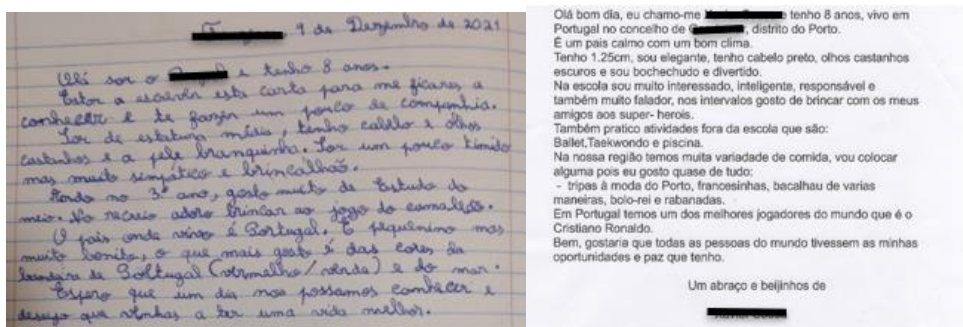 9 de Dezembro de 2021
Olá sou o e tenho 8 anos.
Estou a escrever esta carta para me ficares a
conhecer e te fazer um pouco de companhia.
Sou de estatura média, tenho cabelo e olhos
castanhos e a pele branquinha. Sou um pouco tímido
mas muito simpático e brincalhão.
Ando no 3º ano, gosto muito de Estudo do
meio. No recreio adoro brincar ao jogo do camaleão.
O país onde vivo é Portugal. É pequenino mas
muito bonito, o que mais gosto é das cores da
bandeira de Portugal (vermelho/verde) e do mar.
Espero que um dia nos possamos conhecer e
desejo que venhas a ter uma vida melhor.
Olá bom dia, eu chamo-me e tenho 8 anos, vivo em
Portugal no concelho de , distrito do Porto.
É um pais calmo com um bom clima.
Tenho 1.25cm, sou elegante, tenho cabelo preto, olhos castanhos
escuros e sou bochechudo e divertido.
Na escola sou muito interessado, inteligente, responsável e
também muito falador, nos intervalos gosto de brincar com os meus
amigos aos super- herois.
Também pratico atividades fora da escola que são:
Ballet,Taekwondo e piscina.
Na nossa região temos muita variadade de comida, vou colocar
alguma pois eu gosto quase de tudo:
- tripas à moda do Porto, francesinhas, bacalhau de varias
maneiras, bolo-rei e rabanadas.
Em Portugal temos um dos melhores jogadores do mundo que é o
Cristiano Ronaldo.
Bem, gostaria que todas as pessoas do mundo tivessem as minhas
oportunidades e paz que tenho.
Um abraço e beijinhos de